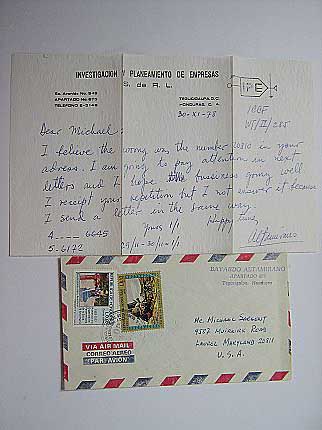 INVESTIGACION Y PLANEAMIENTO DE EMPRESAS
S. de R. L.
5a. Avenida No. 949
APARTADO No. 875
TELEFONO 2-3146
TEGUCIGALPA D.C.
HONDURAS, C. A.
IPE
30-XI-78
Dear Michael:
I believe the wrong was the number 20810 in your
adress. I am going to pay attention in next
letters and I hope the business going well
I receipt your repetition but I not answer it because
I send a letter in the same way.
Happy time,
Yours 1/1
4---- 6645
5-6172
BAYARDO ALTAMIRANO
APARTADO 875
Tegucigalpa, Honduras
Mr. Michael Sargent
9507 Muirkirk Road
Laurel Maryland 20811
U.S.A.
VIA AIR MAIL
CORREO AEREO
PAR AVION